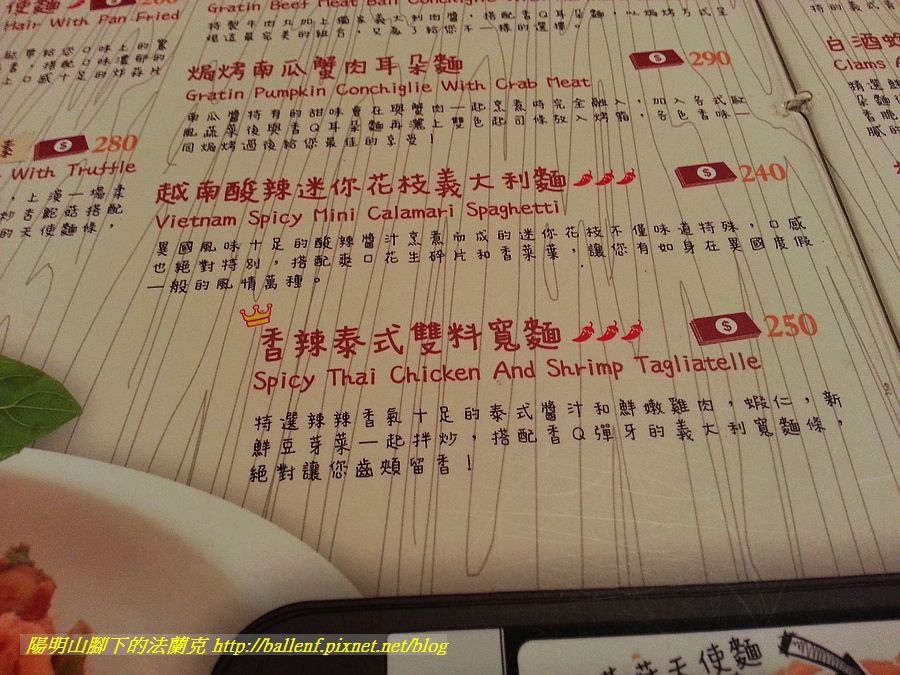 使麵
260
Hair With Pan Fried
280
With Truffle
，上演一場柔
炒杏鮑菇搭配
的天使麵條，
Gratin Beef Meat Ball Conchiglie With
焗烤南瓜蟹肉耳朵麵
290
Gratin Pumpkin Conchiglie With Crab Meat
南瓜醬特有的甜味會在與蟹肉一起烹煮時完全融入，加入各式歐
風蔬菜後與香Q耳朵麵再灑上雙色起司條放入烤箱，各色香味一
同焗烤過後給您最佳的享受！
越南酸辣迷你花枝義大利麵
240
Vietnam Spicy Mini Calamari Spaghetti
異國風味十足的酸辣醬汁烹煮而成的迷你花枝不僅味道特殊，口感
也絕對特別，搭配爽口花生碎片和香菜葉，讓您有如身在異國度假
一般的風情萬種。
香辣泰式雙料寬麵
250
Spicy Thai Chicken And Shrimp Tagliatelle
特選辣辣香氣十足的泰式醬汁和鮮嫩雞肉，蝦仁，新
鮮豆芽菜一起拌炒，搭配香Q彈牙的義大利寬麵條，
絕對讓您齒頰留香！
白酒
Clams
精選
天使麵
陽明山腳下的法蘭克 http://ballenf.pixnet.net/blog